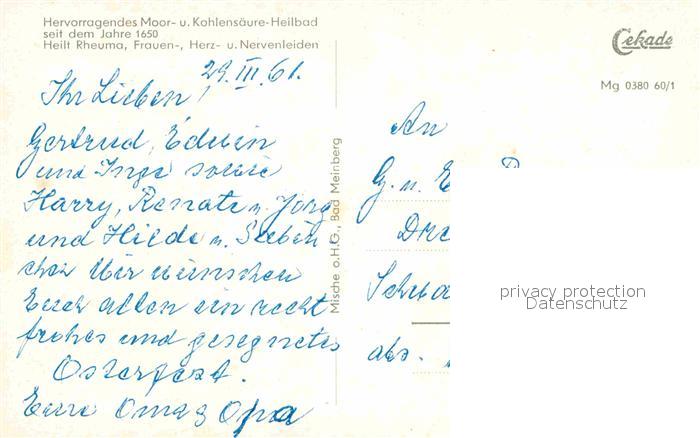 Hervorragendes Moor- u. Kohlensäure-Heilbad
seit dem Jahre 1650
Heilt Rheuma, Frauen-, Herz- u. Nervenleiden
Cekade
Mg 0380 60/1
29. III. 61.
Ihr Lieben!
Gertrud, Edwin
und Inge sowie
Harry, Renate u. Jörg
und Hilde u.
chen Wir wünschen
Euch allen ein recht
frohes und gesegnetes
Osterfest.
Eure Oma & Opa
Mische o.H.G., Bad Meinberg
An
G. u. E
Dre
Schwa
abs.
privacy protection
Datenschutz